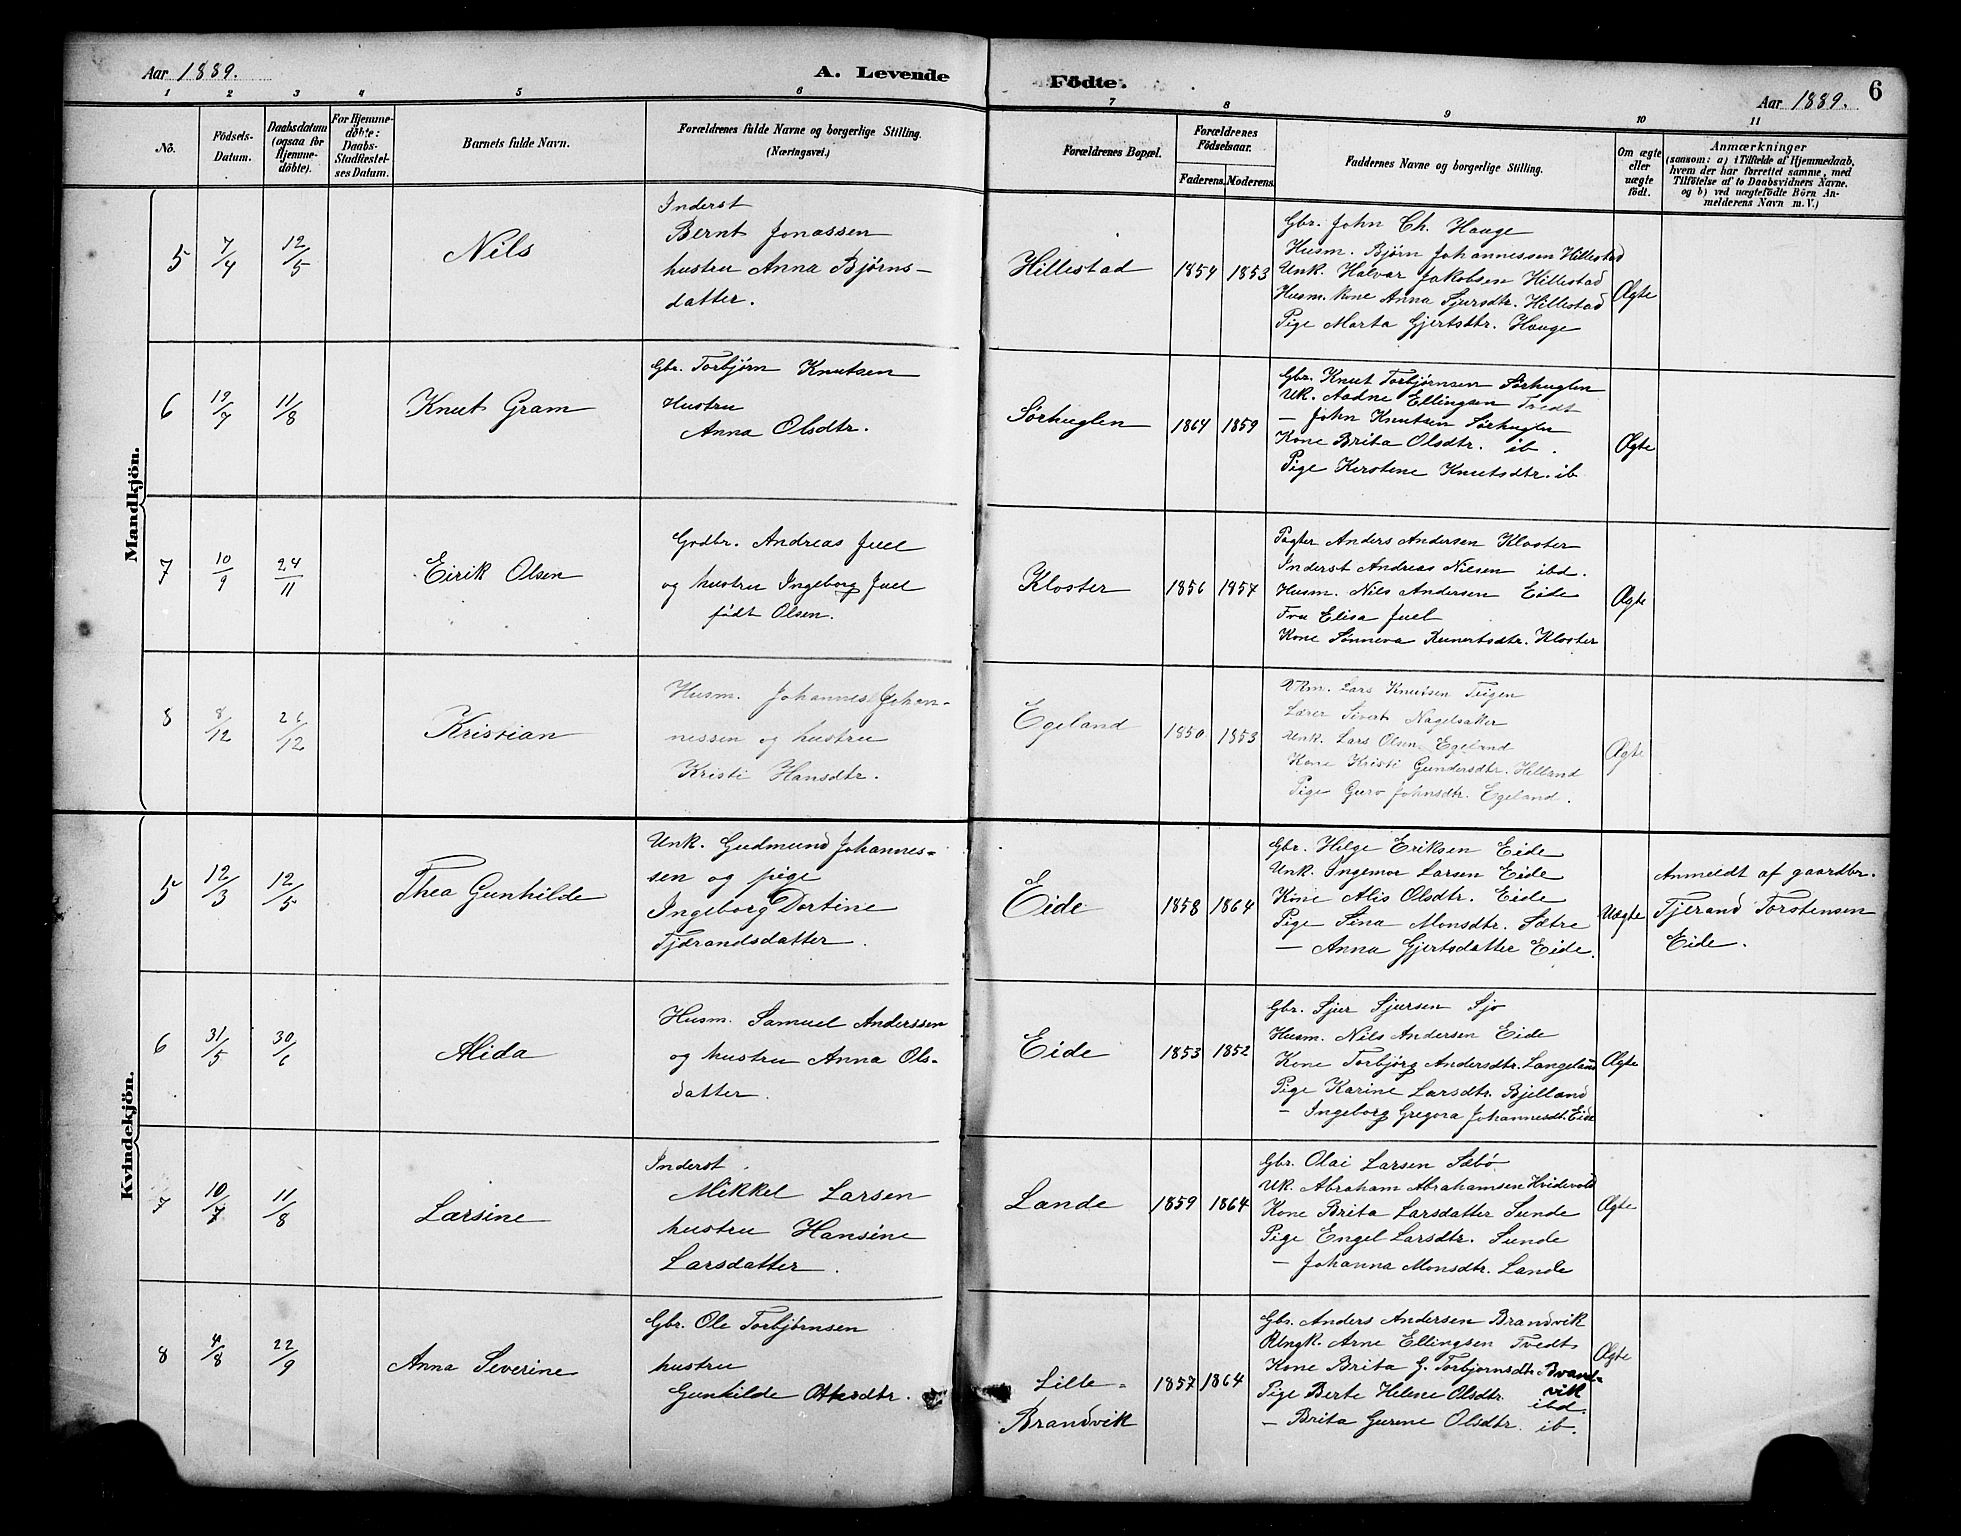 Aar 1889.
A. Levende
Födte.
Aar 1889.
6
1 2 3 4 5 6 7 8 9 10 11
No.
Födsels-
Datum.
Daabsdatum
(ogsaa för
Hjemme-
döbte).
For Hjemme-
döbte:
Daabs-
Stadfæstel-
ses Datum.
Barnets fulde Navn.
Forældrenes fulde Navne og borgerlige Stilling.
(Næringsvei.)
Forældrenes Bopæl.
Forældrenes
Födselsaar.
Faderens. Moderens.
Faddernes Navne og borgerlige Stilling.
Om ægte
eller
uægte
födt.
Anmærkninger
(saasom: a) i Tilfælde af Hjemmedaab,
hvem der har forrettet samme, med
Tilföielse af to Daabsvidners Navne.
og b) ved uægtefödte Börn An-
melderens Navn m. V.)
Mandkjön.
5
7/4
12/5
Nils
Inderst
Bernt Jonassen
hustru Anna Bjørns-
datter.
Hillestad
1854 1853
Gbr. John Ch. Hauge
Husm. Bjørn Johannessen Hillestad
Unk. Halvar Jakobsen Hillestad
Husm. kone Anna Sjursdtr. Hillestad
Pige Marta Gjertsdtr. Hauge
Ægte
6
19/7
11/8
Knut Gram
Gbr. Torbjørn Knutsen
Hustru
Anna Olsdtr.
Sørhuglen
1864 1859
Gbr. Knut Torbjørnsen Sørhuglen
Uk. Aadne Ellingsen Tvedt
— John Knutsen Sørhuglen
Kone Brita Olsdtr. ib.
Pige Kerstene Knutsdtr. ib
Ægte
7
10/9
24/11
Eirik Olsen
Grdbr. Andreas Juel
og hustru Ingeborg Juel
født Olsen.
Kloster
1856 1857
Pagter Anders Andersen Kloster
Inderst Andreas Nilsen ibd.
Husm. Nils Andersen Eide
Fru Elisa Juel
Kone Sønneva Reinertsdtr. Kloster
Ægte
8
8/12
26/12
Kristian
Husm. Johannes Johan-
nessen og hustru
Kristi Hansdtr.
Egeland
1850 1853
Lars Knutsen Teigen
Lærer Sivert Nagelsaker
Unk. Lars Olsen Egeland
Kone Kristi Gundersdtr. Helland
Pige Guro Johnsdtr. Egeland.
Ægte
Kvindekjön.
5
12/3
12/5
Thea Gunhilde
Unk. Gudmund Johannes-
sen og pige
Ingeborg Dortine
Tjærandsdatter.
Eide
1858 1864
Gbr. Helge Eriksen Eide
Unk. Ingemor Larsen Eide
Kone Alis Olsdtr. Eide
Pige Sina Monsdtr. Sætre
— Anna Gjertsdatter Eide.
Uægte
Anmeldt af gaardbr.
Tjerand Torstensen
Eide.
6
31/5
30/6
Alida
Husm. Samuel Anderssen
og hustru Anna Ols-
datter.
Eide
1853 1852
Gbr. Sjur Sjursen Sjo
Husm. Nils Andersen Eide
Kone Torbjørg Andersdtr. Langeland
Pige Karine Larsdtr. Bjelland
— Ingeborg Gregora Johannesdt. Eide
Ægte
7
10/7
11/8
Larsine
Inderst
Mikkel Larsen
hustru Hansine
Larsdatter.
Lande
1859 1864
Gbr. Olai Larsen Sæbø
Uk. Abraham Abrahamsen Hvidevold
Kone Brita Larsdatter Sunde
Pige Engel Larsdtr. Sunde
— Johanna Monsdtr. Lande
Ægte
8
4/8
22/9
Anna Severine
Gbr. Ole Torbjørnsen
hustru
Gunhilde
Lille-
Brandvik
1857 1864
Gbr. Anders Andersen Brandvik
Ungk. Arne Ellingsen Tvedt
Kone Brita G. Torbjornsdtr. Brand-
vik
Pige Berte Helene Olsdtr. ibd.
— Brita Gurine Olsdtr. ib.
Ægte